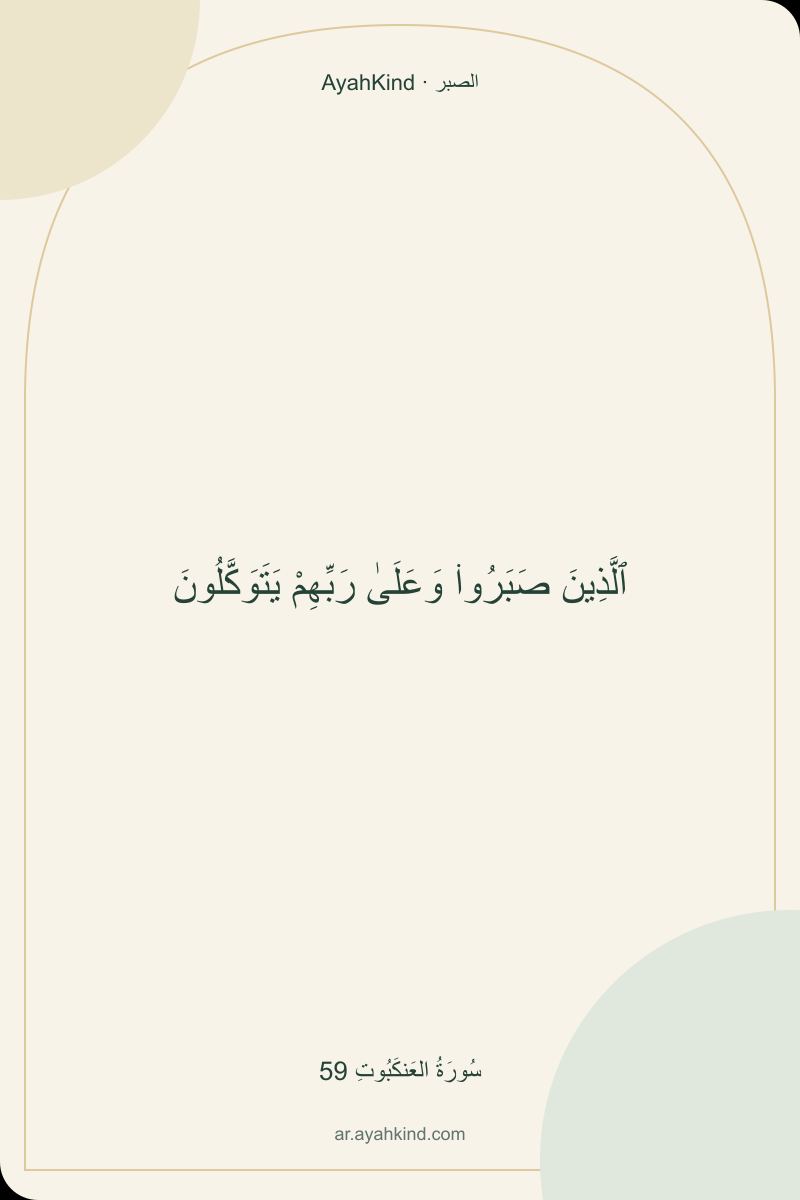 الصبر · AyahKind
ٱلَّذِينَ صَبَرُوا۟ وَعَلَىٰ رَبِّهِمْ يَتَوَكَّلُونَ
سُورَةُ العَنكَبُوتِ 59
ar.ayahkind.com